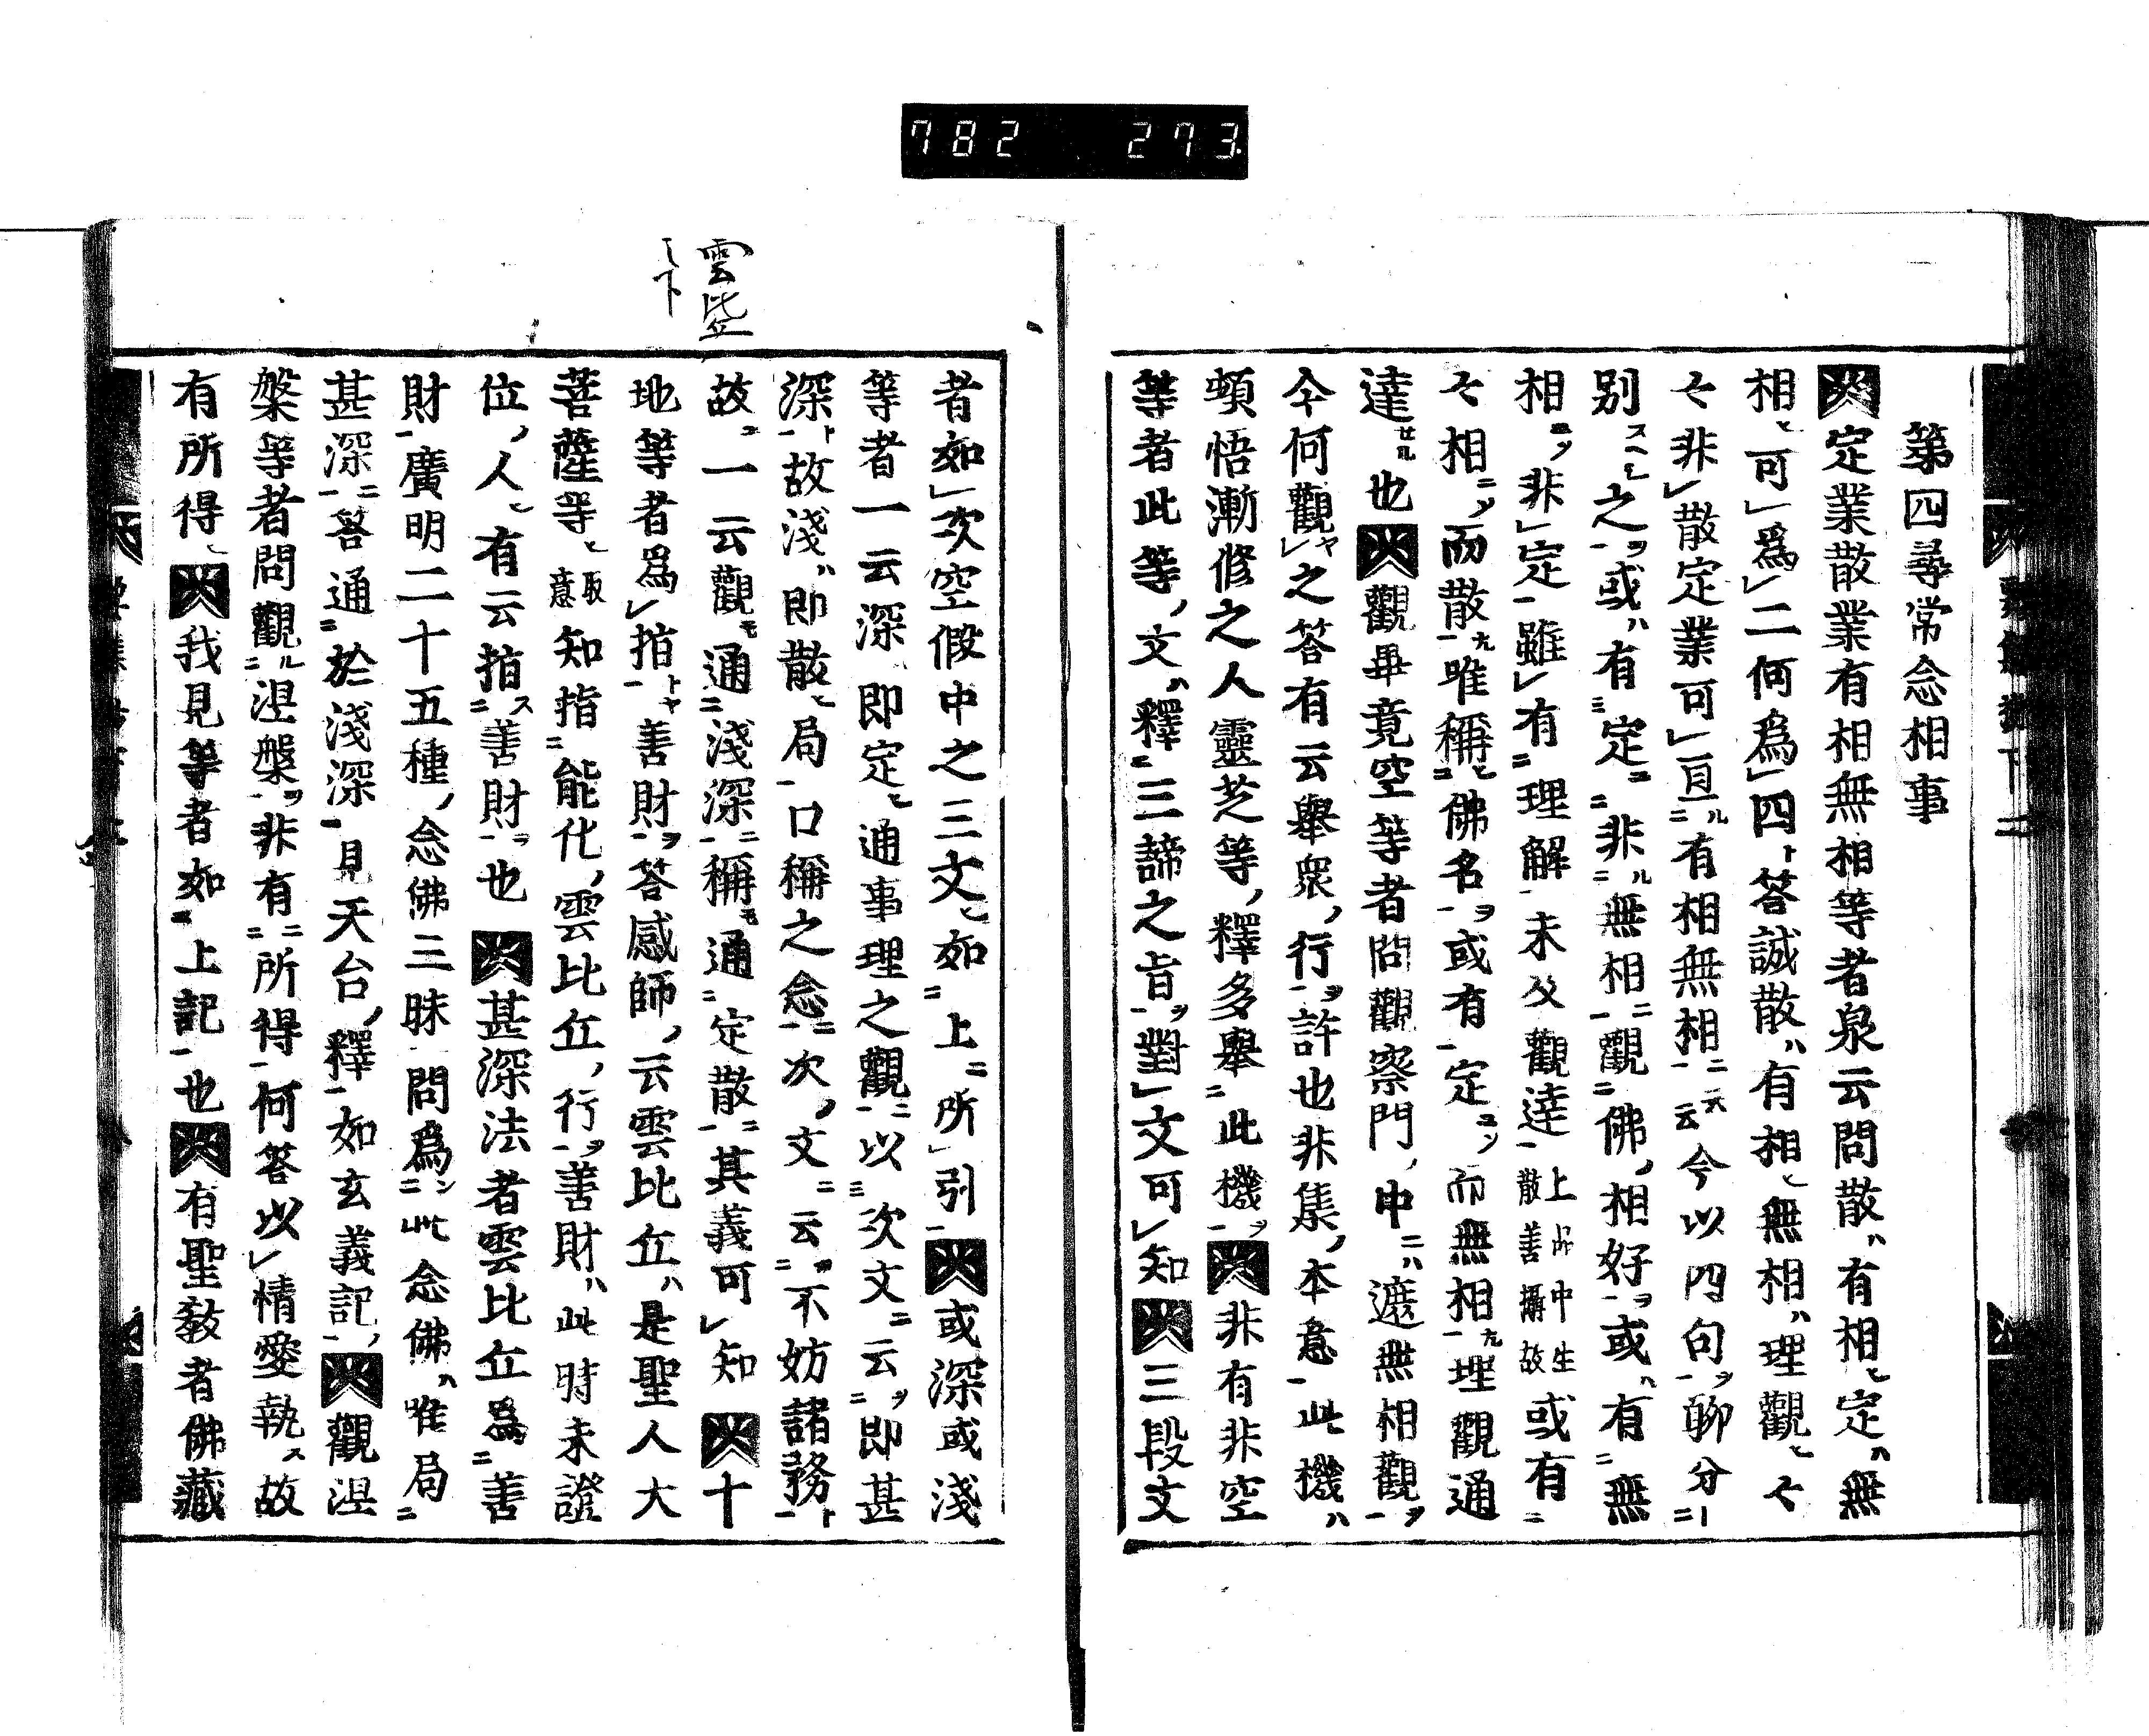 782 273
第四尋常念相事
定業散業有相無相等者泉云問散ハ有相ヒ定ハ無
相ヒ可爲二何爲四ト答誠散ハ有相ヒ無相ハ理觀ヒ々
々非散定業可亘ル有相無相云云今以四句ヲ聊分
別スヘシ之ヲ或ハ有定ニ非ル無相觀佛相好ヲ或ハ有無
相ニソ非定雖有理解未及觀達上品中生散善攝故或有
々相ニソ而散ナル唯稱ヒ佛名ヲ或有定ニソ而無相ナル理觀通
達セル也觀畢竟空等者問觀察門中ニハ遮無相觀ヲ
今何觀ヤ之答有云擧衆行ヲ許也非集本意此機ハ
頓悟漸修之人靈芝等釋多擧此機ヲ非有非空
等者此等文ハ釋三諦之旨ヲ對文可知三段文
者如次空假中之三文ヒ如上所引或深或淺
等者一云深即定ヒ通事理之觀以次文云ヲ即甚
深ト故淺ハ即散ヒ局口稱之念次文云ヲ不妨諸務ト
故ニ一云觀モ通淺深稱モ通定散其義可知十
地等者爲指トヤ善財ヲ答感師云雲比丘ハ是聖人大
菩薩等ヒ取意知指能化雲比丘行ヲ善財ハ此時未證
位人ヒ有云指ス善財ヲ也甚深法者雲比丘爲善
財廣明二十五種念佛三昧問爲ン此念佛ハ唯局
甚深答通於淺深見天台釋如玄義記觀涅
槃等者問觀ル涅槃ヲ非有所得何答以情愛執ス故
有所得ヒ我見等者如上記也有聖教者佛藏
雲比丘
〻下